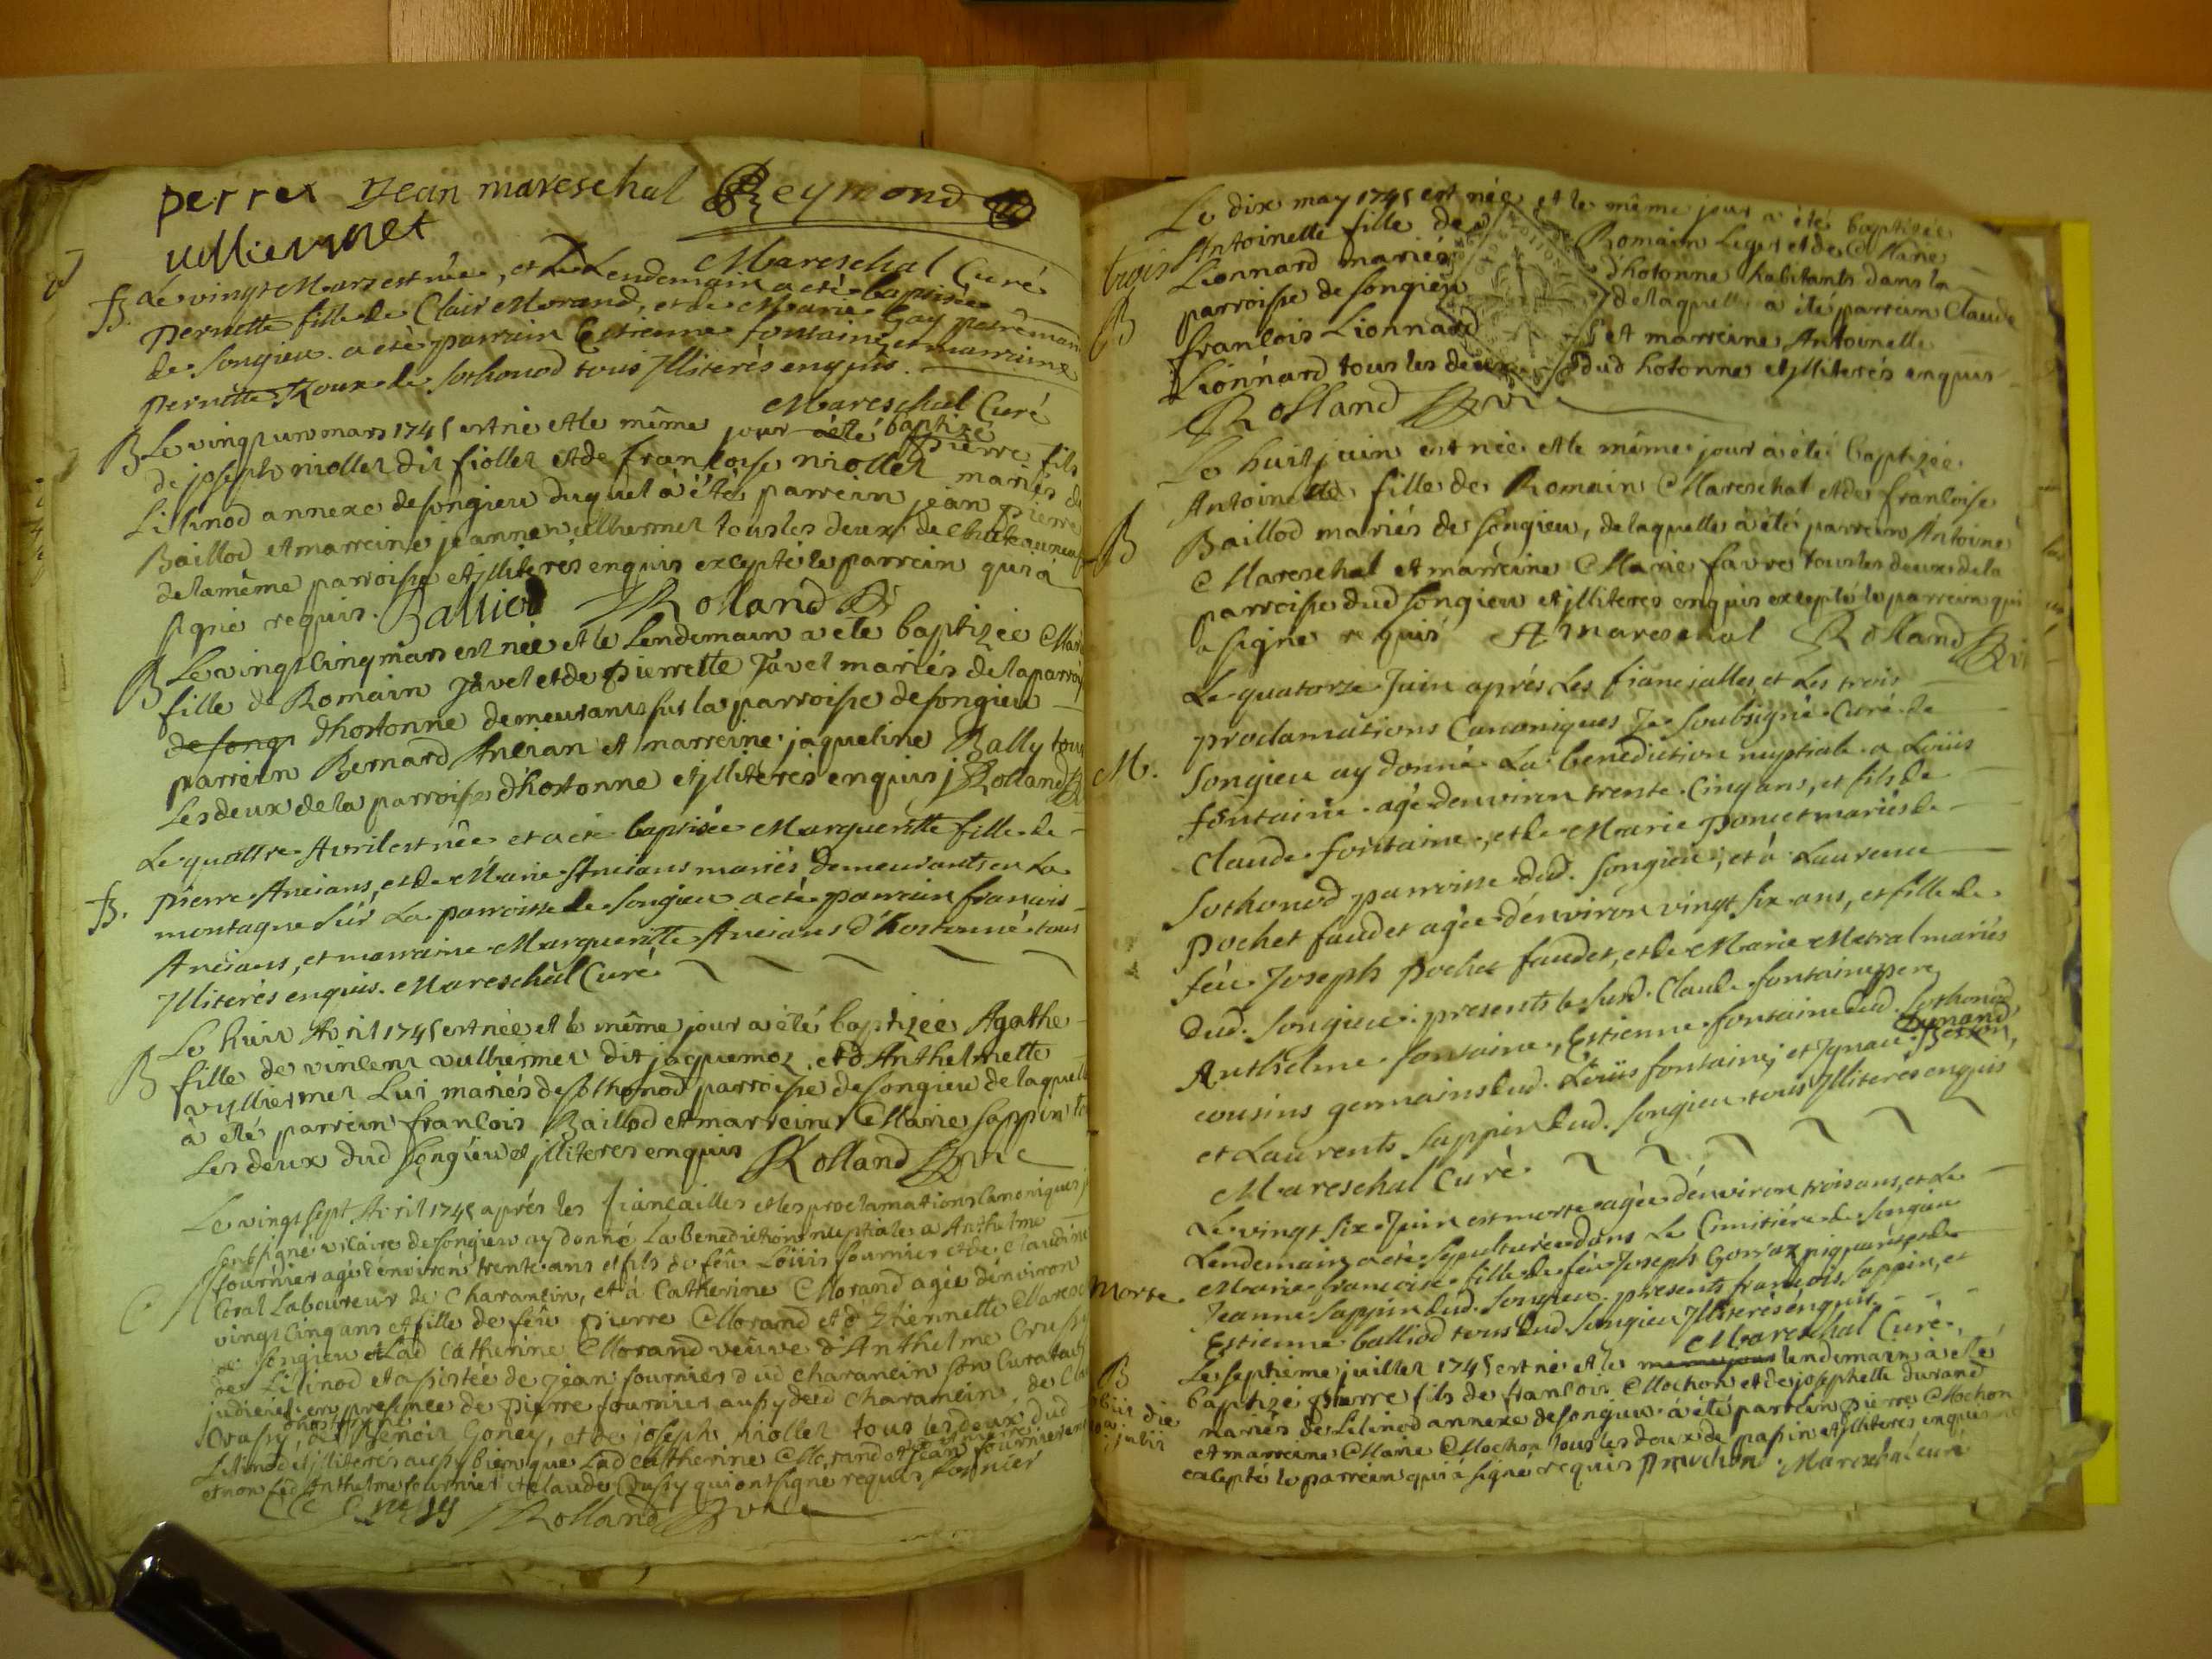 perrex Jean mareschal Reymond
vulliermet
Mareschal Curé
B. Le vingt Mars est née, et Le Lendemain a eté baptisée
pernette fille de Clair Morand, et de Marie Gay
de Songieu. a eté parrain Estienne fontaine, et marraine
pernette Roux de Sothonod tous Illiterés enquis.
Mareschal Curé
B Le vingt un mars 1745 est né et le même jour a été baptizé
pierre fils
de joseph niollet dit fiollet et de françoise niollet mariés de
Lilinod annexe de songieu duquel a été parrein jean pierre
Baillod et marreine jeanne vulliermet tous les deux de chateauneuf
de la même parroisse et jlliterés enquis excepté le parrein qui a
signé requis. Ballliod Rolland
B Le vingt cinq mars est née et le lendemain a été baptizée
fille de Romain Javel et de pierrette Javel mariés de la parroi
de song dhostonne demeurants sur la parroisse de songieu
parrein Bernard Ancian et marreine jaqueline Bally tous
Les deux de la parroisse dhostonne et jlliterés enquis Rolland
B. Le quattre Avril est née et a eté baptisée Marguerite fille de
pierre Ancians, et de Marie Ancians mariés demeurants en La
montagne sur La parroisse de Songieu a eté parrain francois
Ancians, et marraine Marguerite Ancians d'hostonne tous
Illiterés enquis. Mareschal Curé
B Le huit Avril 1745 est née et le même jour a été baptizée Agathe
fille de vincent vulliermet dit jaquemoz et d'Anthelmette
vulliermet Lui mariés de sothonod parroisse de songieu de laquelle
à été parrein francois Baillod et marreine Marie sappin
Les deux dud songieu et jlliterés enquis Rolland Vic
Le vingt sept Avril 1745 après les fiançailles et les proclamations canoniques
soussigné vicaire de songieu ay donné La benediction nuptiale a Anthelme
fournier agé d'environ trente ans et fils de feu Loüis fournier et de claudine
Coral Laboureur de Charancin, et à Catherine Morand agée d'environ
vingt cinq ans et fille de feu pierre Morand et d'Etiennette
de songieu et Lad Catherine Morand veuve d'Anthelme Crussy
de Lilinod et assistée de Jean fournier dud charancin son
en presence de pierre fournier aussy dud charancin, de
Crussy, de Benoit Goney, et de joseph niollet tous les deux dud
dhostonne
Lilinod et jlliterés aussy bien que Lad catherine Morand et Jean fournier
et non led Anthelme fournier et claude Crussy qui ont signé requis fornier
C Crussy Rolland Vic
Le dix may 1745 est née et le même jour a été baptizée
trois Antoinette fille de Romain Leger et de Marie
Lionnard mariés d'hotonne habitants dans la
B parroisse de songieu de laquelle a été parrein Claude
francois Lionnard et marreine Antoinette
Lionnard tous les deux dud hotonne et jlliterés enquis
Rolland Vic
Le huit juin est née et le même jour à été baptizée
Antoinette fille de Romain Mareschal et de françoise
B Baillod mariés de songieu, de laquelle à été parrein Antoine
Mareschal et marreine Marie favre tous les deux de la
parroisse dud songieu et jlliterés enquis excepté le parrein qui
a signé requis A mareschal Rolland Vi
Le quatorze Juin après Les fiancialles, et Les trois
proclamations Canoniques Je Soubsigné Curé de
M. Songieu ay donné La benediction nuptiale a Loüis
fontaine agé denviron trente cinq ans, et fils de
Claude fontaine, et de Marie poncet mariés de
Sothonod parroisse dud. Songieu, et à Laurence
pochet faudet agée d'environ vingt six ans, et fille de
feu Joseph pochet faudet, et de Marie Metral mariés
dud. Songieu: presents le susd. Claude fontaine pere,
Anthelme fontaine, Estienne fontaine dud. Sothonod
cousins germains dud. Loüis fontaine, et Ignace
et Laurents Sappin dud. Songieu tous Illiterés enquis
Mareschal Curé.
Le vingt six Juin est morte agée d'environ trois ans, et Le
Lendemain a eté sepulturée dans Le Cimitiére de Songieu
Morte. Marie francoise fille de feu Joseph
Jeanne Sappin dud. Songieu. presents francois Sappin, et
Estienne balliod tous dud. Songieu Illiterés enquis.
Mareschal Curé.
B Le septième juillet 1745 est né et le même jour lendemain à été
baptizé pierre fils de francois Mochon et de josephette durand
mariés de Lilinod annexe de songieu a été parrein pierre Mochon
et marreine Marie Mochon tous les deux de passin et jlliterés enquis
excepté le parrein qui à signé requis Mareschal curé